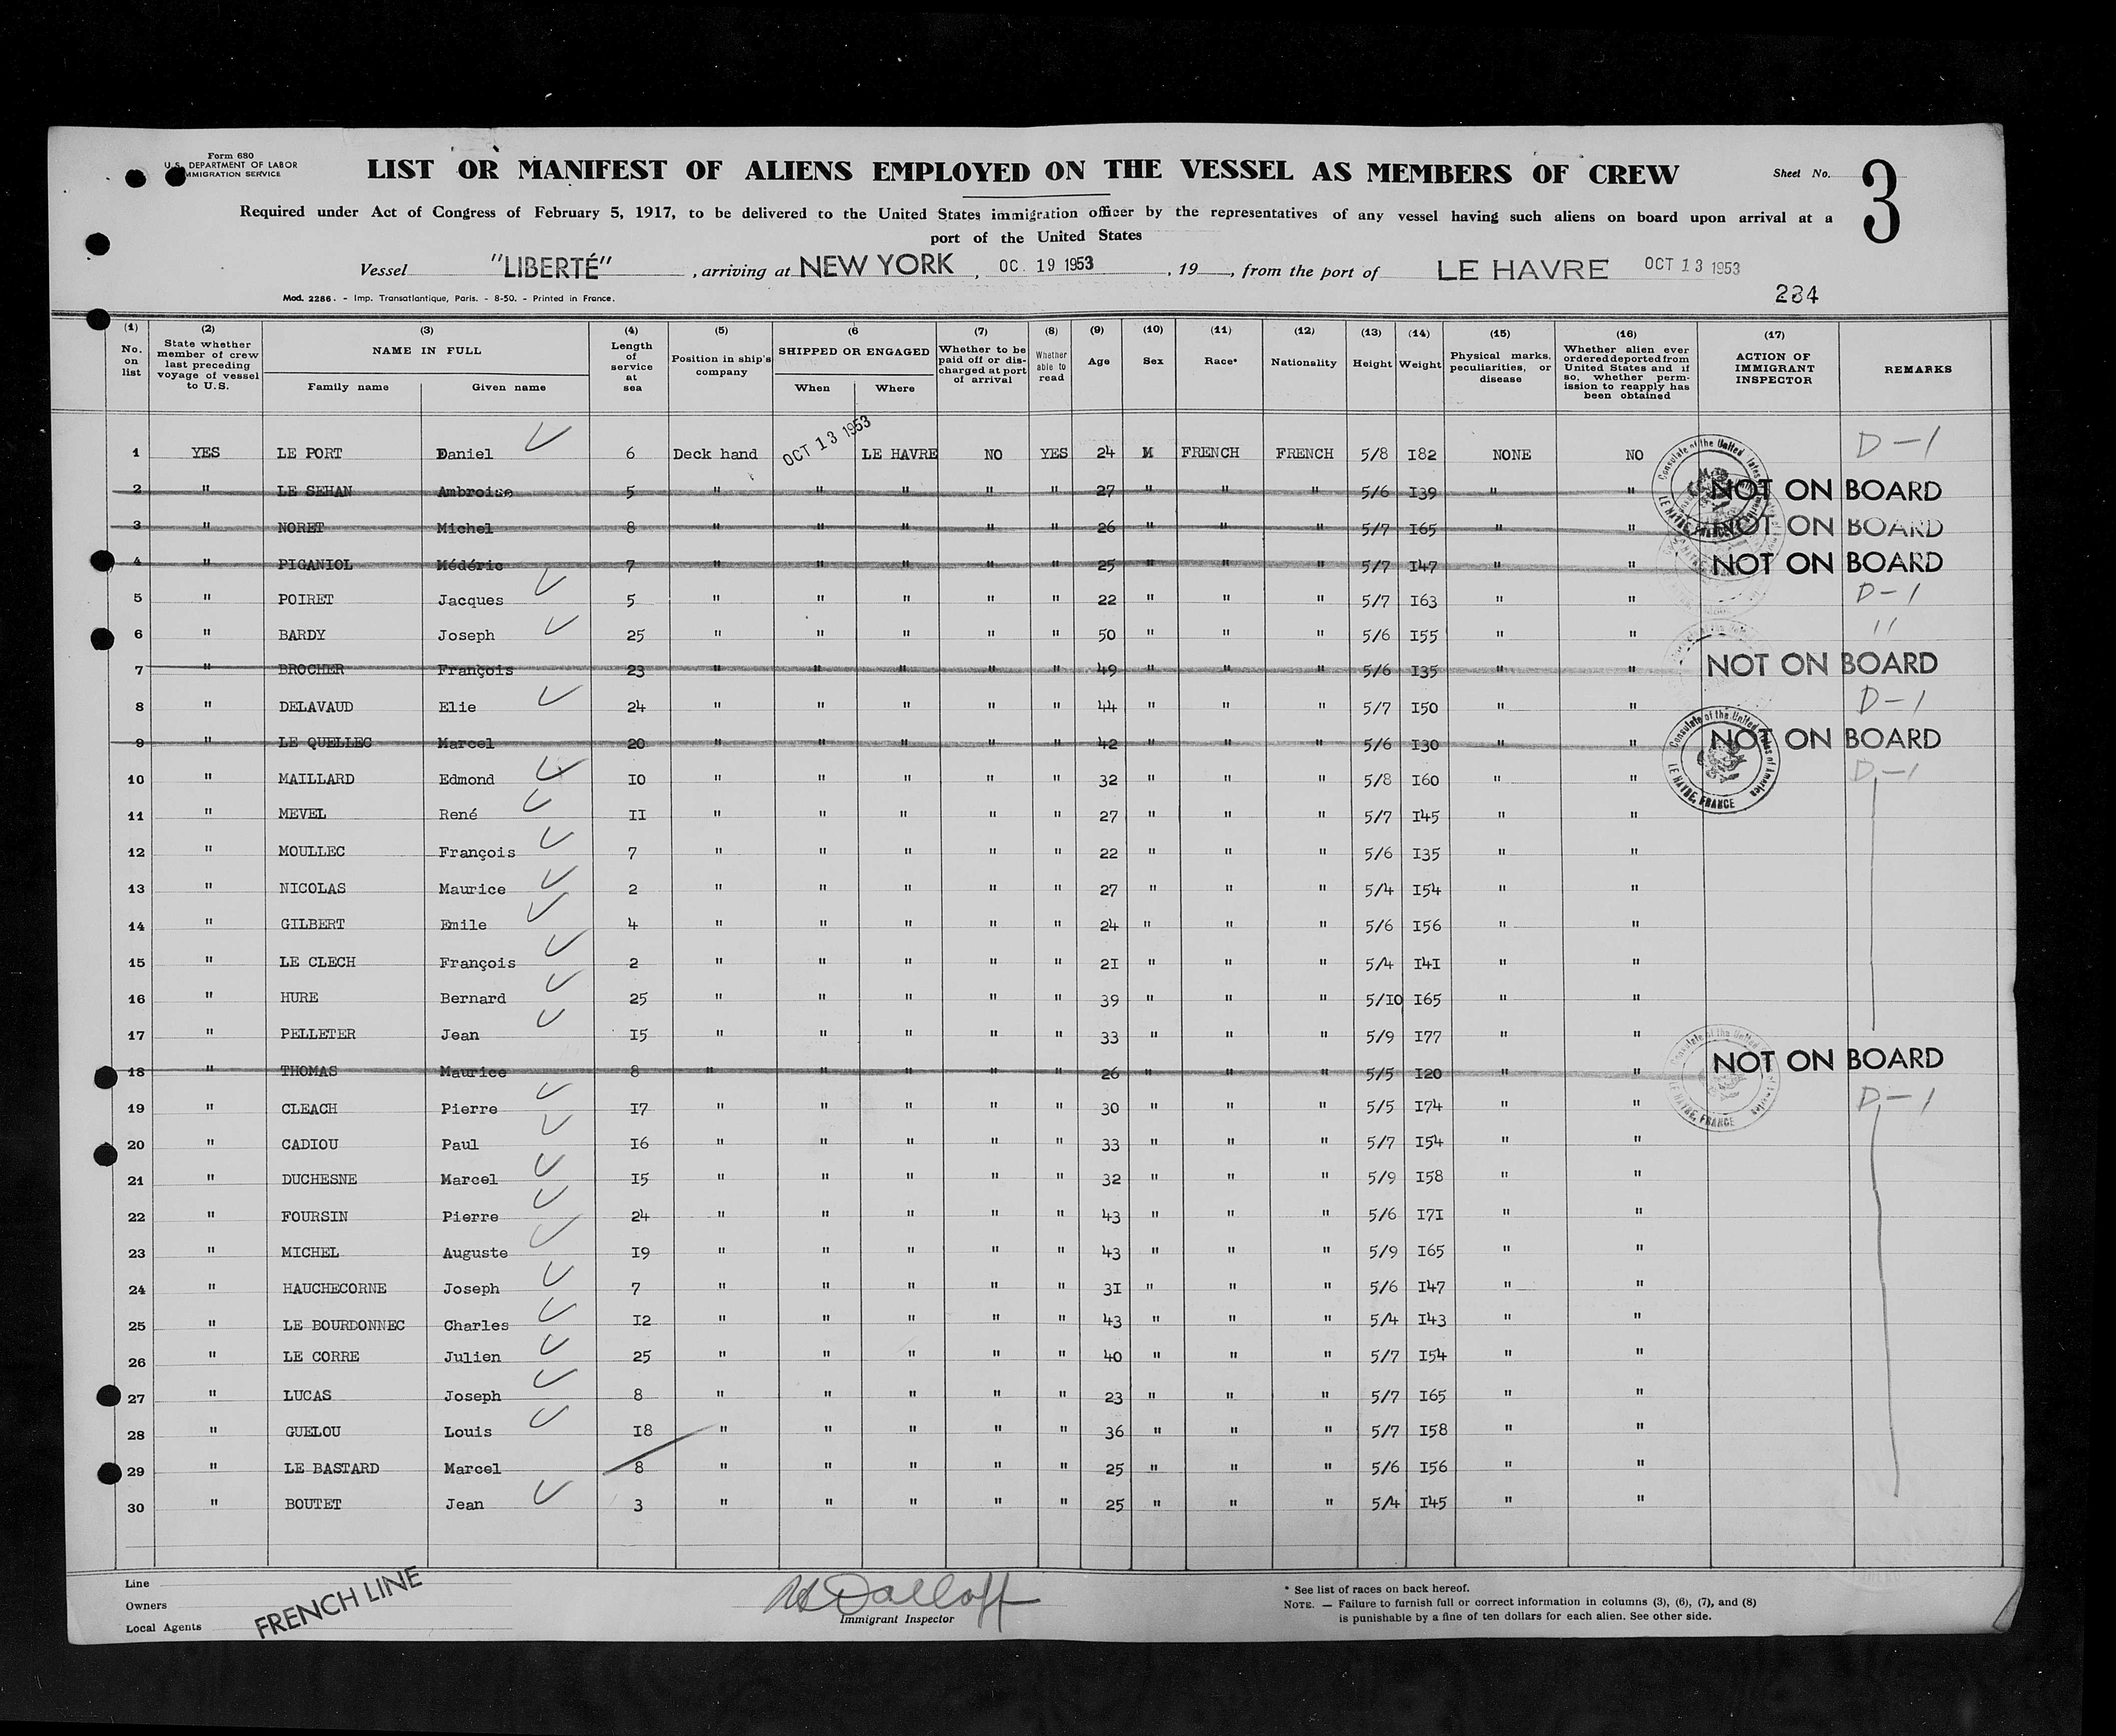 Form 680
U.S. DEPARTMENT OF LABOR
IMMIGRATION SERVICE
LIST OR MANIFEST OF ALIENS EMPLOYED ON THE VESSEL AS MEMBERS OF CREW
Sheet No. 3
Required under Act of Congress of February 5, 1917, to be delivered to the United States immigration officer by the representatives of any vessel having such aliens on board upon arrival at a
port of the United States
Vessel "LIBERTÉ" , arriving at NEW YORK , OC. 19 1953 , 19 , from the port of LE HAVRE OCT 13 1953
Mod. 2286. - Imp. Transatlantique, Paris. - 8-50. - Printed in France.
284
(1) No. on list (2) State whether member of crew last preceding voyage of vessel to U.S. (3) NAME IN FULL Family name Given name (4) Length of service at sea (5) Position in ship's company (6 SHIPPED OR ENGAGED When Where (7) Whether to be paid off or discharged at port of arrival (8) Whether able to read (9) Age (10) Sex (11) Race* (12) Nationality (13) Height (14) Weight (15) Physical marks, peculiarities, or disease (16) Whether alien ever ordered deported from United States and if so, whether permission to reapply has been obtained (17) ACTION OF IMMIGRANT INSPECTOR REMARKS
1 YES LE PORT Daniel 6 Deck hand OCT 13 1953 LE HAVRE NO YES 24 M FRENCH FRENCH 5/8 I82 NONE NO D-1
2 " LE SEHAN Ambroise 5 " " " " " 27 " " " 5/6 I39 " " NOT ON BOARD
3 " NORET Michel 8 " " " " " 26 " " " 5/7 I65 " " NOT ON BOARD
4 " PIGANIOL Médéric 7 " " " " " 25 " " " 5/7 I47 " " NOT ON BOARD
5 " POIRET Jacques 5 " " " " " 22 " " " 5/7 I63 " " D-1
6 " BARDY Joseph 25 " " " " " 50 " " " 5/6 I55 " " "
7 " BROCHER François 23 " " " " " 49 " " " 5/6 I35 " " NOT ON BOARD
8 " DELAVAUD Elie 24 " " " " " 44 " " " 5/7 I50 " " D-1
9 " LE QUELLEC Marcel 20 " " " " " 42 " " " 5/6 I30 " " NOT ON BOARD
10 " MAILLARD Edmond IO " " " " " 32 " " " 5/8 I60 " " D-1
11 " MEVEL René II " " " " " 27 " " " 5/7 I45 " "
12 " MOULLEC François 7 " " " " " 22 " " " 5/6 I35 " "
13 " NICOLAS Maurice 2 " " " " " 27 " " " 5/4 I54 " "
14 " GILBERT Emile 4 " " " " " 24 " " " 5/6 I56 " "
15 " LE CLECH François 2 " " " " " 2I " " " 5/4 I4I " "
16 " HURE Bernard 25 " " " " " 39 " " " 5/IO I65 " "
17 " PELLETER Jean I5 " " " " " 33 " " " 5/9 I77 " "
18 " THOMAS Maurice 8 " " " " " 26 " " " 5/5 I20 " " NOT ON BOARD
19 " CLEACH Pierre I7 " " " " " 30 " " " 5/5 I74 " " D-1
20 " CADIOU Paul I6 " " " " " 33 " " " 5/7 I54 " "
21 " DUCHESNE Marcel I5 " " " " " 32 " " " 5/9 I58 " "
22 " FOURSIN Pierre 24 " " " " " 43 " " " 5/6 I7I " "
23 " MICHEL Auguste I9 " " " " " 43 " " " 5/9 I65 " "
24 " HAUCHECORNE Joseph 7 " " " " " 3I " " " 5/6 I47 " "
25 " LE BOURDONNEC Charles I2 " " " " " 43 " " " 5/4 I43 " "
26 " LE CORRE Julien 25 " " " " " 40 " " " 5/7 I54 " "
27 " LUCAS Joseph 8 " " " " " 23 " " " 5/7 I65 " "
28 " GUELOU Louis I8 " " " " " 36 " " " 5/7 I58 " "
29 " LE BASTARD Marcel 8 " " " " " 25 " " " 5/6 I56 " "
30 " BOUTET Jean 3 " " " " " 25 " " " 5/4 I45 " "
Consulate of the United States of America LE HAVRE, FRANCE
Line
Owners
Local Agents
FRENCH LINE
Immigrant Inspector
* See list of races on back hereof.
NOTE. — Failure to furnish full or correct information in columns (3), (6), (7), and (8)
is punishable by a fine of ten dollars for each alien. See other side.